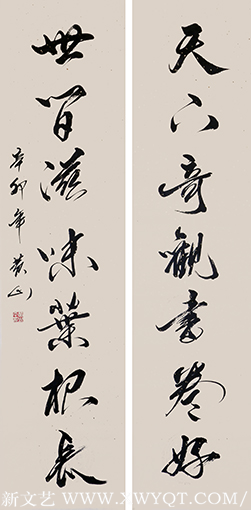 天下奇觀書卷好
世間滋味菜根長
辛卯年
新文艺 WWW.XWYQT.COM/